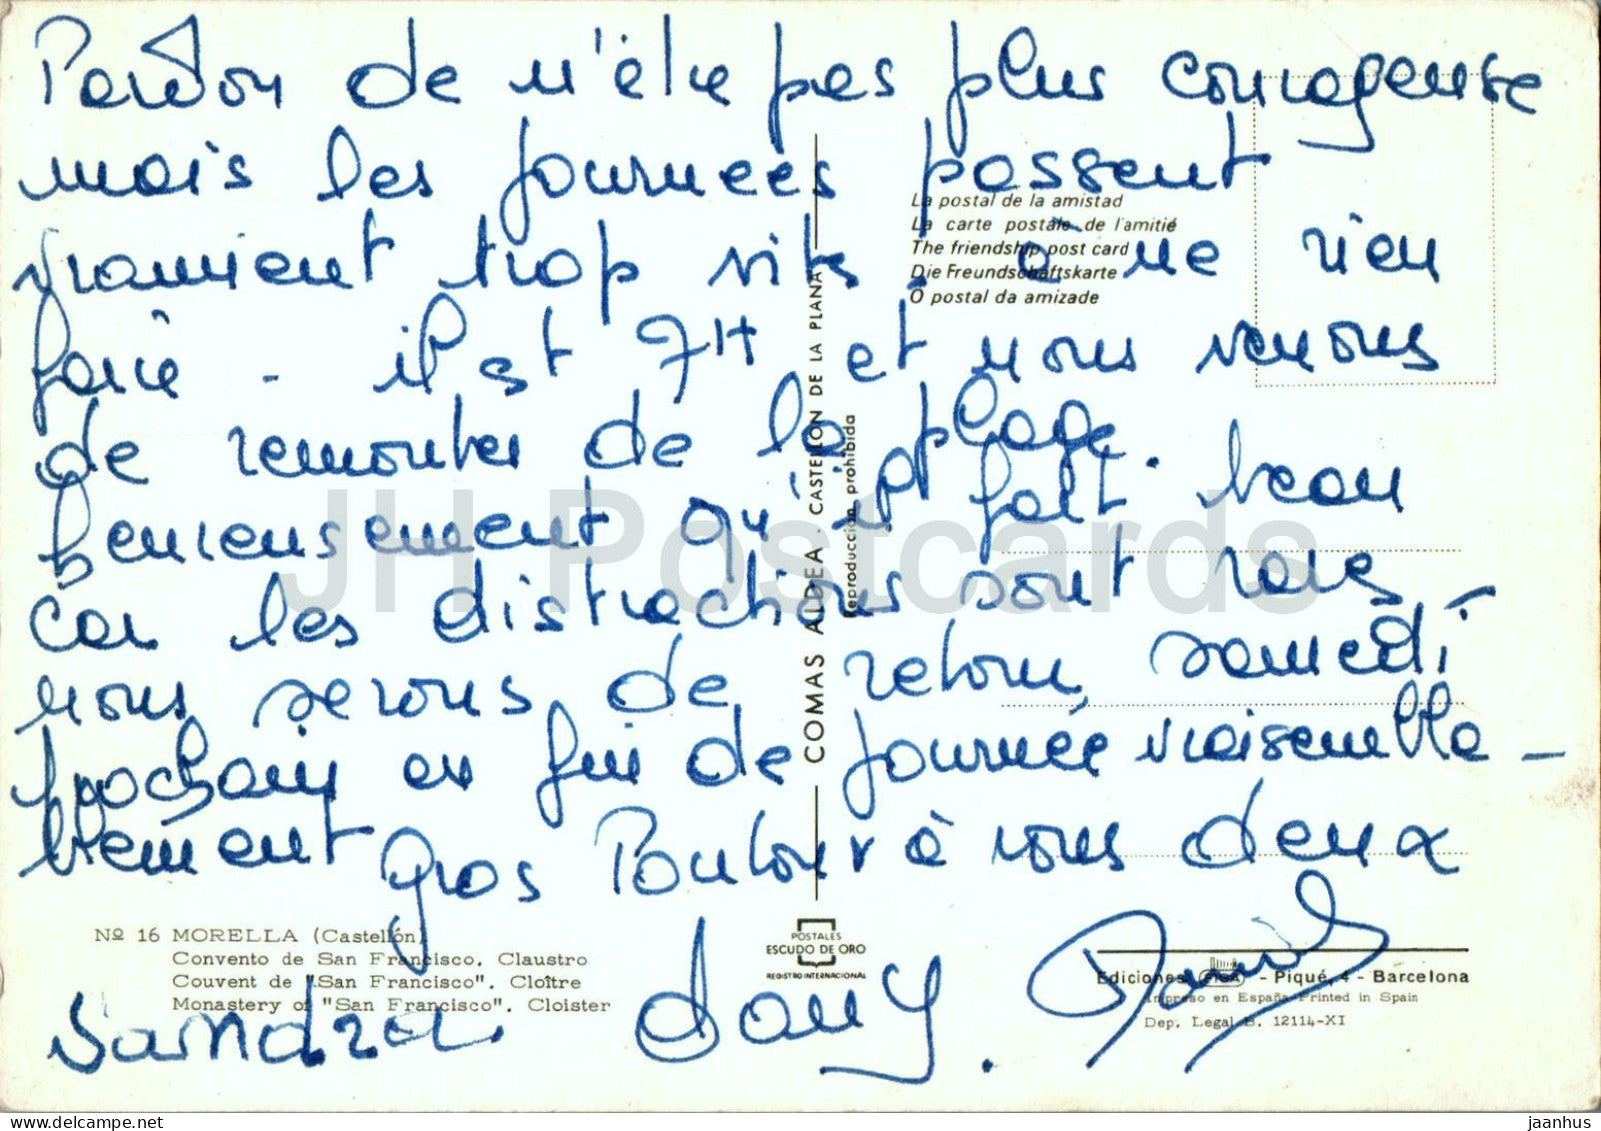 Pardon de n'être pas plus courageuse
mais les journées passent
vraiment trop vite à ne rien
faire - il est 7H et nous venons
de remonter de la plage.
heureusement qu'il fait beau
car les distractions sont rares -
nous serons de retour samedi
prochain en fin de journée vraisembla-
blement
gros Poutous à vous deux
Sandra. dany.
La postal de la amistad
La carte postale de l'amitié
The friendship post card
Die Freundschaftskarte
O postal da amizade
COMAS ALDEA. CASTELLON DE LA PLANA
Reproducción prohibida
Nº 16 MORELLA (Castellón)
Convento de San Francisco. Claustro
Couvent de "San Francisco". Cloître
Monastery of "San Francisco". Cloister
POSTALES
ESCUDO DE ORO
REGISTRO INTERNACIONAL
Ediciones FISA - Piqué, 4 - Barcelona
Impreso en España-Printed in Spain
Dep. Legal B. 12114-XI
JH Postcards
jaanhus | delcampe.net